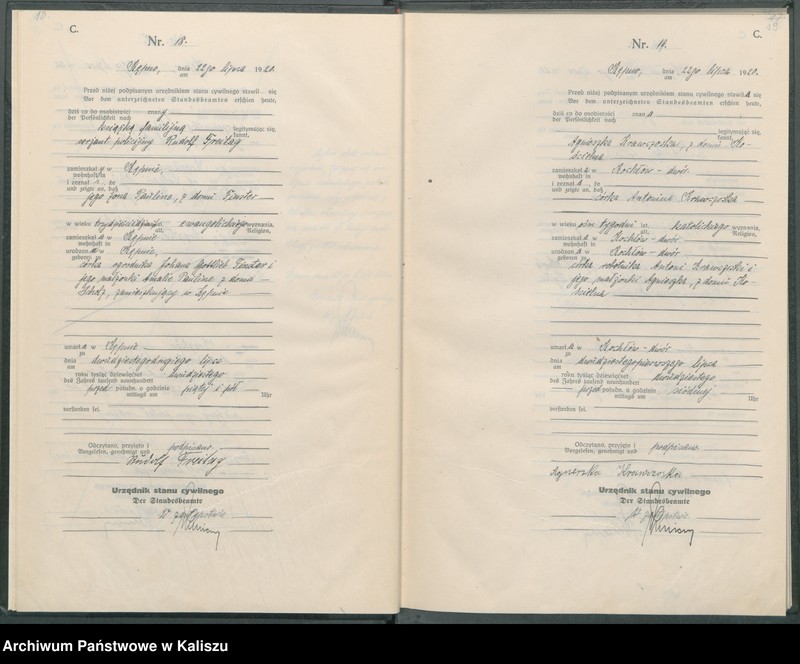 C.
Nr. 18.
Kępno, dnia 22go lipca 1920.
am
Przed niżej podpisanym urzędnikiem stanu cywilnego stawił się
Vor dem unterzeichneten Standesbeamten erschien heute,
dziś co do osobistości znany
der Persönlichkeit nach
książką familijną legitymując się,
kannt,
serjant policyjny Rudolf Freitag
zamieszkały w Kępnie,
wohnhaft in
i zeznał, że
und zeigte an, daß
jego żona Paulina, z domu Finster
w wieku ewangelickiego wyznania,
alt, Religion,
zamieszkała w Kępnie
wohnhaft in
urodzona w Kępnie,
geboren zu
córka ogrodnika Johana Gottlieb Finster i
jego małżonki Amalie Pauline z domu
Scholz, w Kępnie
umarła w Kępnie
zu
dnia dwudziestegodrugiego lipca
am
roku tysiąc dziewięćset dwudziestego
des Jahres tausend neunhundert
przed połudn. o godzinie piątej i pół
mittags um Uhr
verstorben sei.
Odczytano, przyjęto i podpisano
Vorgelesen, genehmigt und
Rudolf Freitag
Urzędnik stanu cywilnego
Der Standesbeamte
W zastępstwie
C.
Nr. 19.
Kępno, dnia 22go lipca 1920.
am
Przed niżej podpisanym urzędnikiem stanu cywilnego stawiła się
Vor dem unterzeichneten Standesbeamten erschien heute,
dziś co do osobistości znana
der Persönlichkeit nach
legitymując się,
kannt,
Agnieszka Krawczoska, z domu Ko-
ścielna
zamieszkała w Rochłów - dwór
wohnhaft in
i zeznała, że
und zeigte an, daß
córka Antonina Krawczoska
w wieku ośm tygodni katolickiego wyznania,
alt, Religion,
zamieszkała w Rochłów - dwór
wohnhaft in
urodzona w Rochłów - dwór
geboren zu
córka robotnika Antoni Krawczoski i
jego małżonki Agnieszka, z domu Ko-
ścielna
umarła w Rochłów - dwór
zu
dnia dwudziestegopierwszego lipca
am
roku tysiąc dziewięćset dwudziestego
des Jahres tausend neunhundert
przed połudn. o godzinie siódmej
mittags um Uhr
verstorben sei.
Odczytano, przyjęto i podpisano
Vorgelesen, genehmigt und
Agnieszka Krawczoska
Urzędnik stanu cywilnego
Der Standesbeamte
W zastępstwie
Archiwum Państwowe w Kaliszu